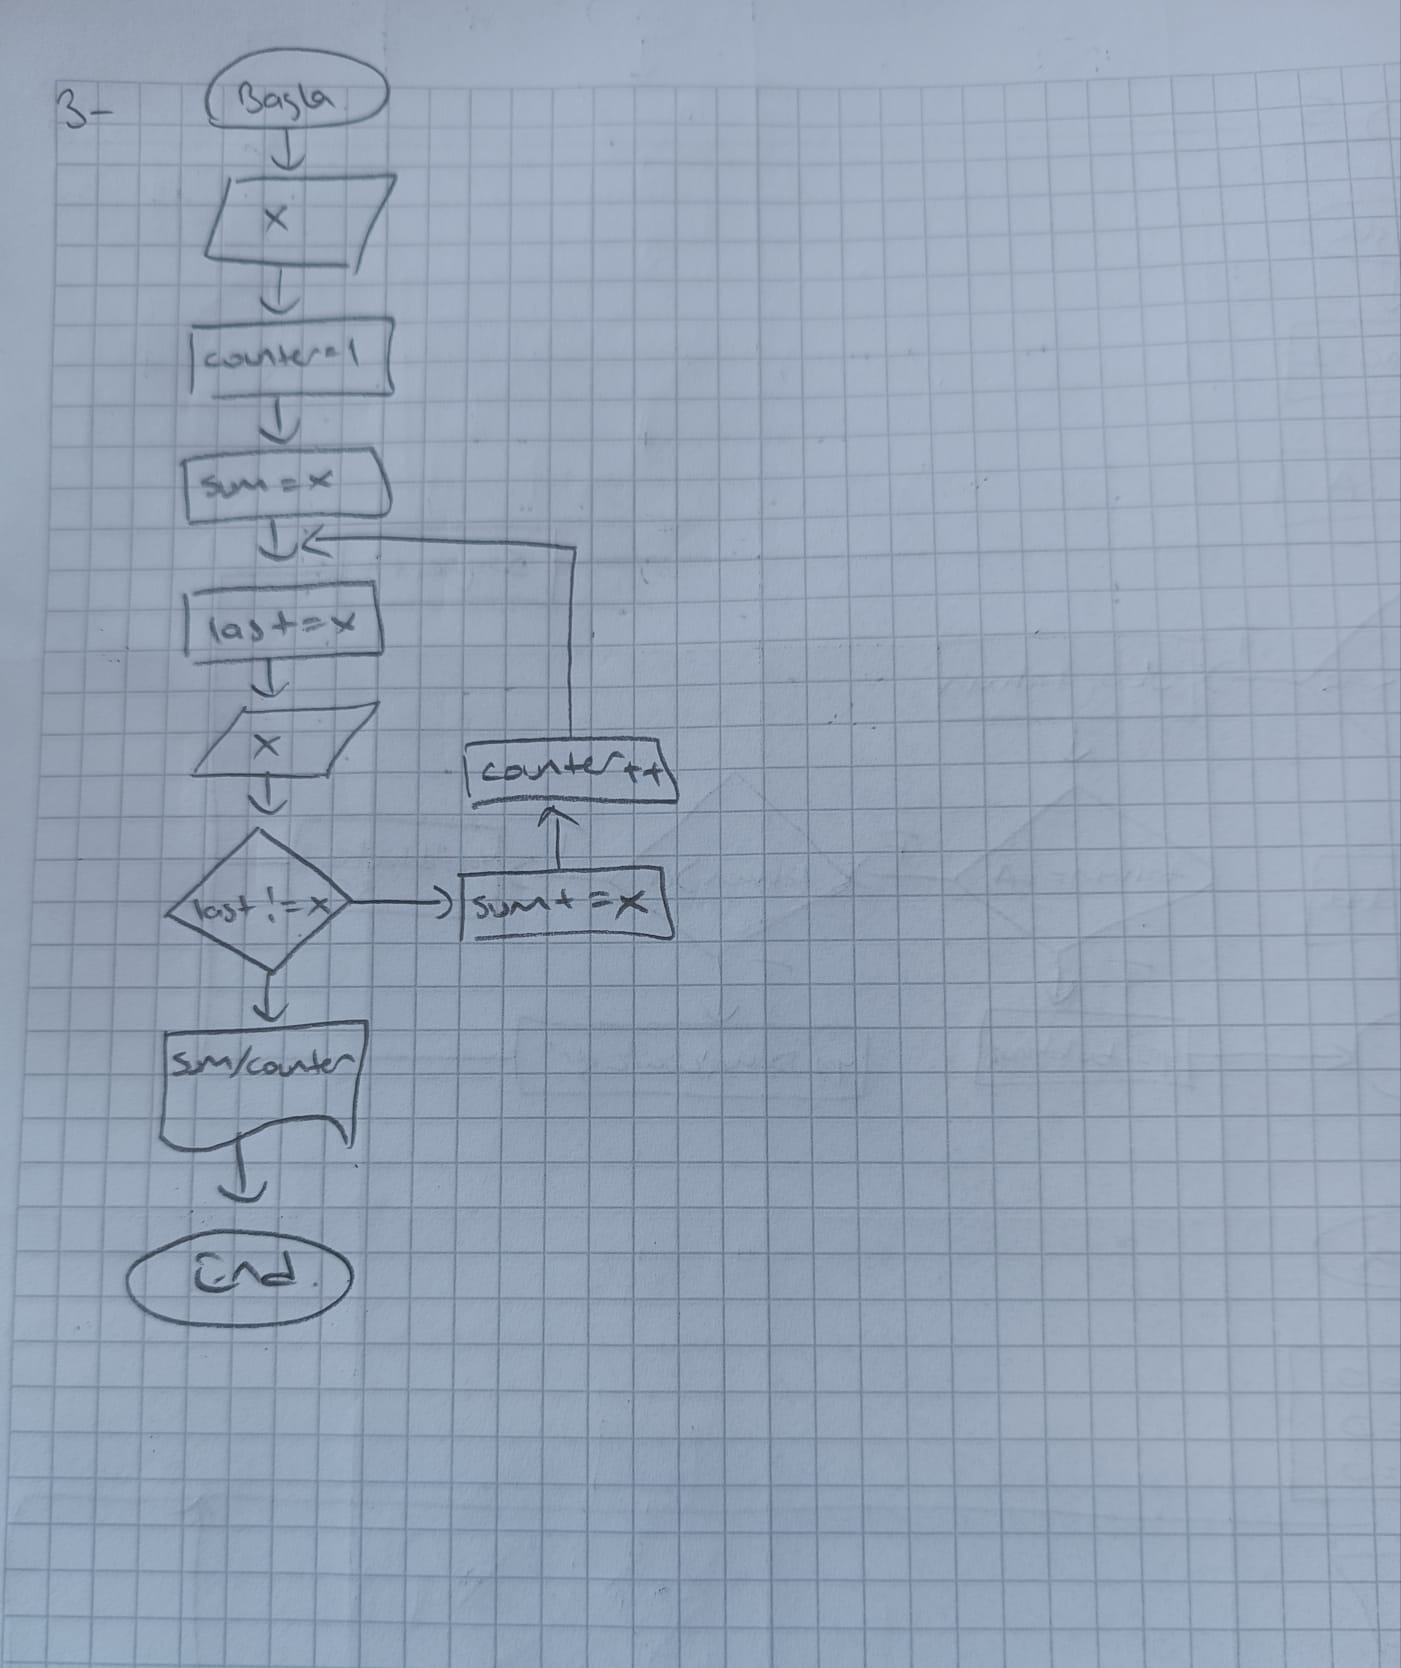 3-
Başla
x
counter=1
sum=x
last=x
x
last!=x
sum+=x
counter++
sum/counter
End